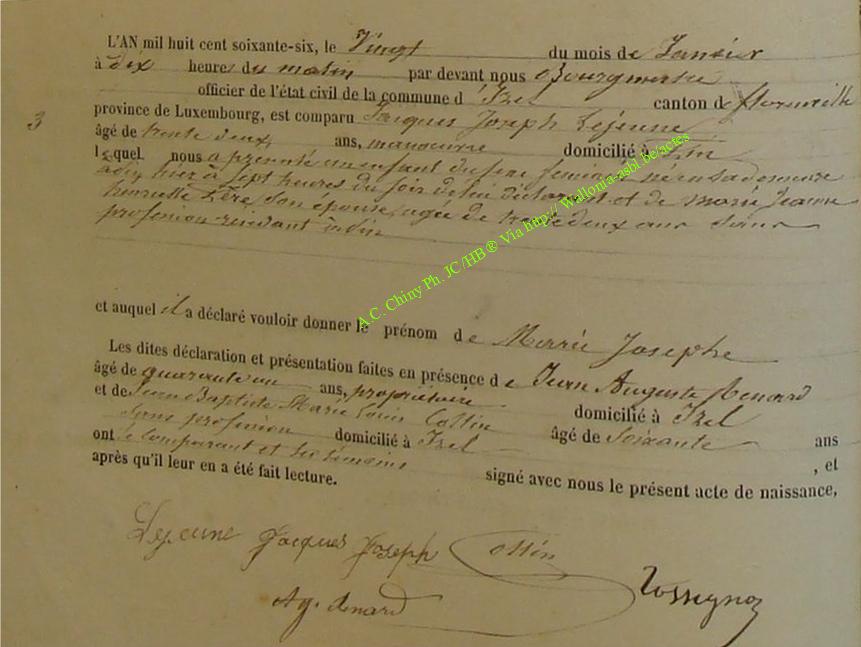 L'AN mil huit cent soixante-six, le Vingt du mois de Janvier
à dix heures du matin par devant nous Bourgmestre
officier de l'état civil de la commune d'Izel canton de florenville
3 province de Luxembourg, est comparu Jacques Joseph Lejeune
âgé de trente deux ans, manoeuvre domicilié à
lequel nous a présenté un enfant du sexe féminin né en sa demeure
hier à sept heures du soir de lui déclarant et de Marie Jeanne
henriette son épouse agée de trente deux ans sans
profession résidant
et auquel il a déclaré vouloir donner le prénom de Marie Josephe
Les dites déclaration et présentation faites en présence de Jean Auguste Renard
âgé de quarante un ans, propriétaire domicilié à Izel
et de Jean Baptiste Marie Louis Collin âgé de Soixante ans
Sans profession domicilié à Izel , et
ont le comparant et les témoins signé avec nous le présent acte de naissance,
après qu'il leur en a été fait lecture.
Lejeune Jacques Joseph Collin
Ag. Renard Rossignon
A.C. Chiny Ph. JC /HB® Via http:// Wallonia-asbl.be/actes